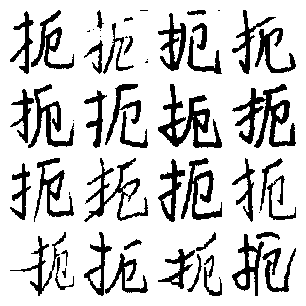 扼扼扼扼
扼扼扼扼
扼扼扼扼
扼扼扼扼